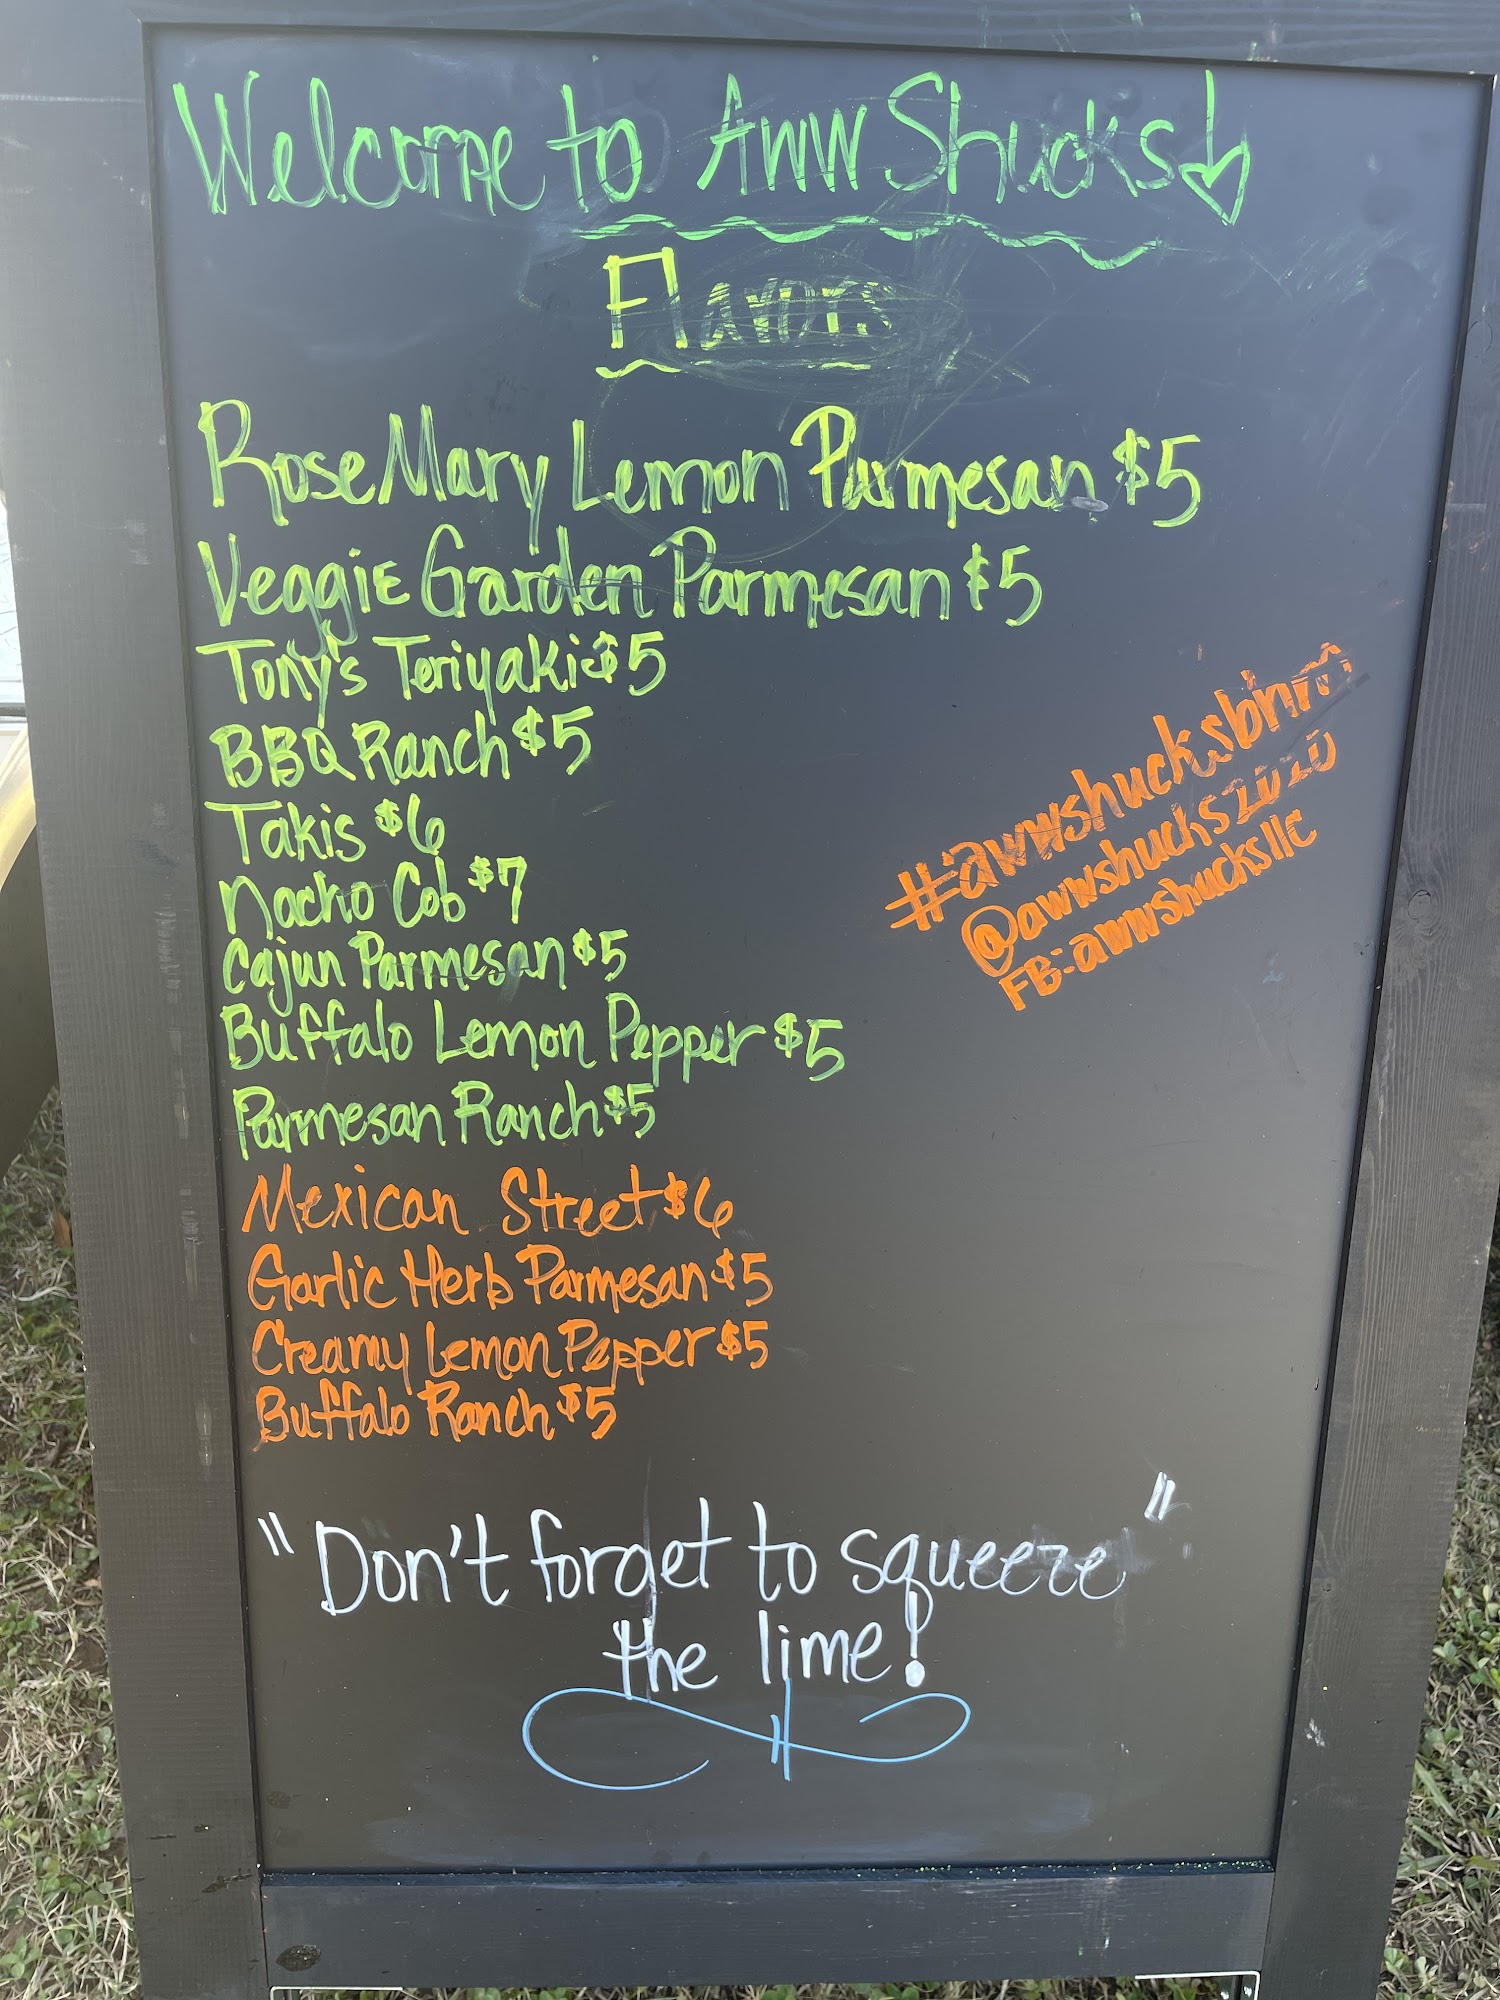 Welcome to Aww Shucks
Flavors
RoseMary Lemon Parmesan $5
Veggie Garden Parmesan $5
Tony's Teriyaki $5
BBQ Ranch $5
Takis $6
Nacho Cob $7
Cajun Parmesan $5
Buffalo Lemon Pepper $5
Parmesan Ranch $5
Mexican Street $6
Garlic Herb Parmesan $5
Creamy Lemon Pepper $5
Buffalo Ranch $5
#awwshucksbhm
@awwshucks2020
FB:awwshucksllc
"Don't forget to squeeze"
the lime!